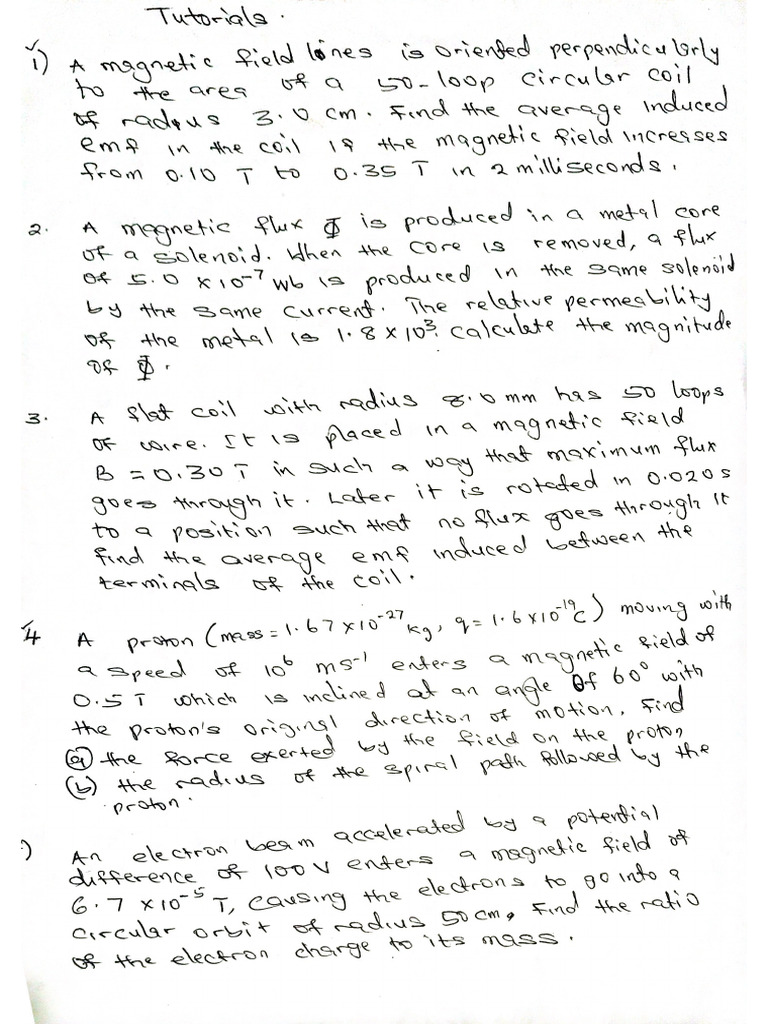 Tutorials.
1) A magnetic field lines is oriented perpendicularly
to the area of a 50-loop circular coil
of radius 3.0 cm. Find the average induced
emf in the coil if the magnetic field increases
from 0.10 T to 0.35 T in 2 milliseconds.
2. A magnetic flux Φ is produced in a metal core
of a solenoid. When the core is removed, a flux
of 5.0 × 10⁻⁷ Wb is produced in the same solenoid
by the same current. The relative permeability
of the metal is 1.8 × 10³. Calculate the magnitude
of Φ.
3. A flat coil with radius 8.0 mm has 50 loops
of wire. It is placed in a magnetic field
B = 0.30 T in such a way that maximum flux
goes through it. Later it is rotated in 0.020 s
to a position such that no flux goes through it
find the average emf induced between the
terminals of the coil.
4 A proton (mass = 1.67 × 10⁻²⁷ kg, q = 1.6 × 10⁻¹⁹ C) moving with
a speed of 10⁶ ms⁻¹ enters a magnetic field of
0.5 T which is inclined at an angle of 60° with
the proton's original direction of motion. Find
(a) the force exerted by the field on the proton
(b) the radius of the spiral path followed by the
proton.
) An electron beam accelerated by a potential
difference of 100 V enters a magnetic field of
6.7 × 10⁻⁵ T, causing the electrons to go into a
circular orbit of radius 50 cm. Find the ratio
of the electron charge to its mass.